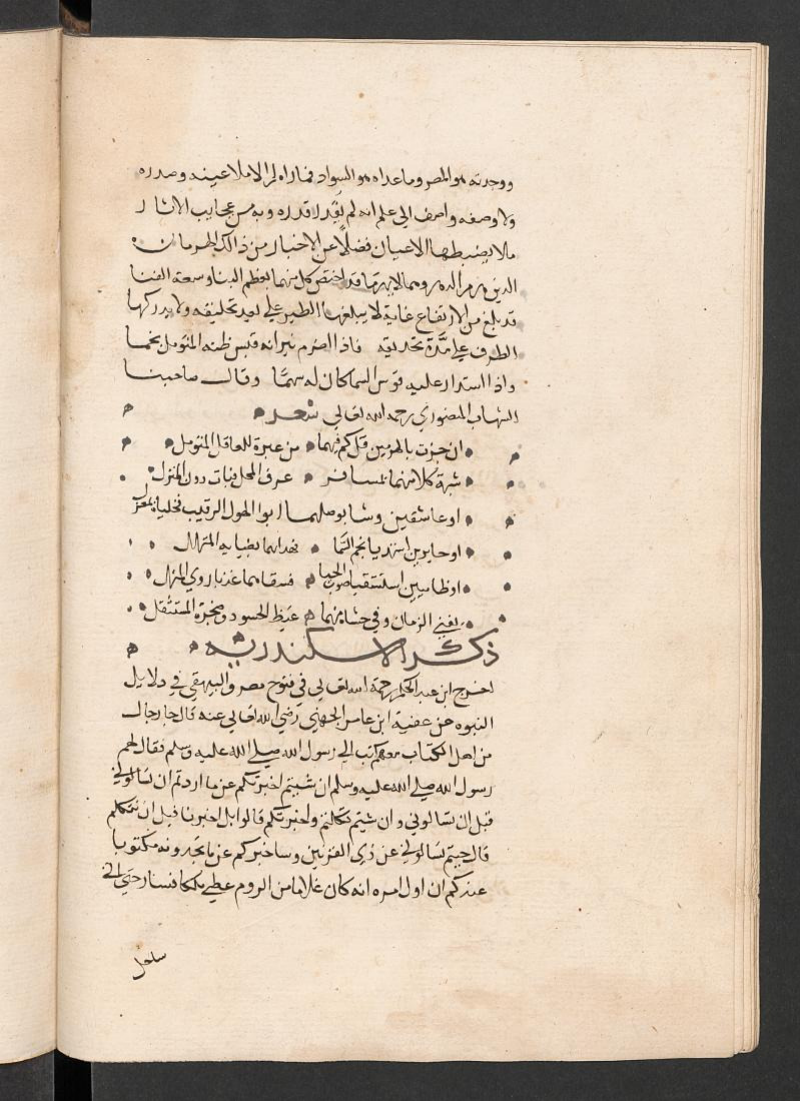 ووجدته هو المصر وما عداه هو السواد فما راه الا ملا عينه وصدره
ولا وصفه واصف الي علم انه لم يقدر قدره وبه من عجايب الاثار
مالا يضبطها الاعيان فضلًا عن الاخبار من ذالك الهرمان
الذين هرم الدهر وهما لا يهرما قد اختص كل منهما بعظم البنا وسعة الفنا
قد بلغ من الارتفاع غاية لا يبلغها الطير علي بعد تحليقه ولا يدركها
الطرف علي مدّة تحديقه فاذا اضرم نيرانه قبس ظنه المتومل نجما
واذا استدار عليه قوس السما كان له سهمًا وقال صاحبنا
الشهاب المنصوري رحمه الله تعالي شعر
ان جزت بالهرمين قل كم فيهما من عبرة للعاقل المتومل
شبهت كلا منهما بمسافر عرف المحل فبات دون المنزل
او عاشقين وشا بوصلهما ابو الهول الرقيب فخلياه بمعزل
او حايرين استهديا نجم السما فهداهما بضيايه المتهلل
او ظاميين استسقيا صوب الحيا فسقاهما عذبا روي المنهل
يفني الزمان وفي حشاه منهما غيظ الحسود وضجرة المستثقل
ذكر الاسكندرية
اخرج ابن عبد الحكم رحمة الله تعالي في فتوح مصر والبيهقي في دلايل
النبوه عن عقبة ابن عامر الجهني رضي الله تعالي عنه قال جا رجال
من اهل الكتاب معهم كتب الي رسول الله صلي الله عليه وسلم فقال لهم
رسول الله صلي الله عليه وسلم ان شيتم اخبرتكم عن ما اردتم ان تسالوني
قبل ان تسالوني وان شيتم تكلمتم واخبرتكم قالوا بل اخبرنا قبل ان نتكلم
قال جيتم تسالوني عن ذي القرنين وساخبركم عن ما تجدونه مكتوبا
عندكم ان اول امره انه كان غلاما من الروم عطي ملكا فسار حتي اتي
ساحل